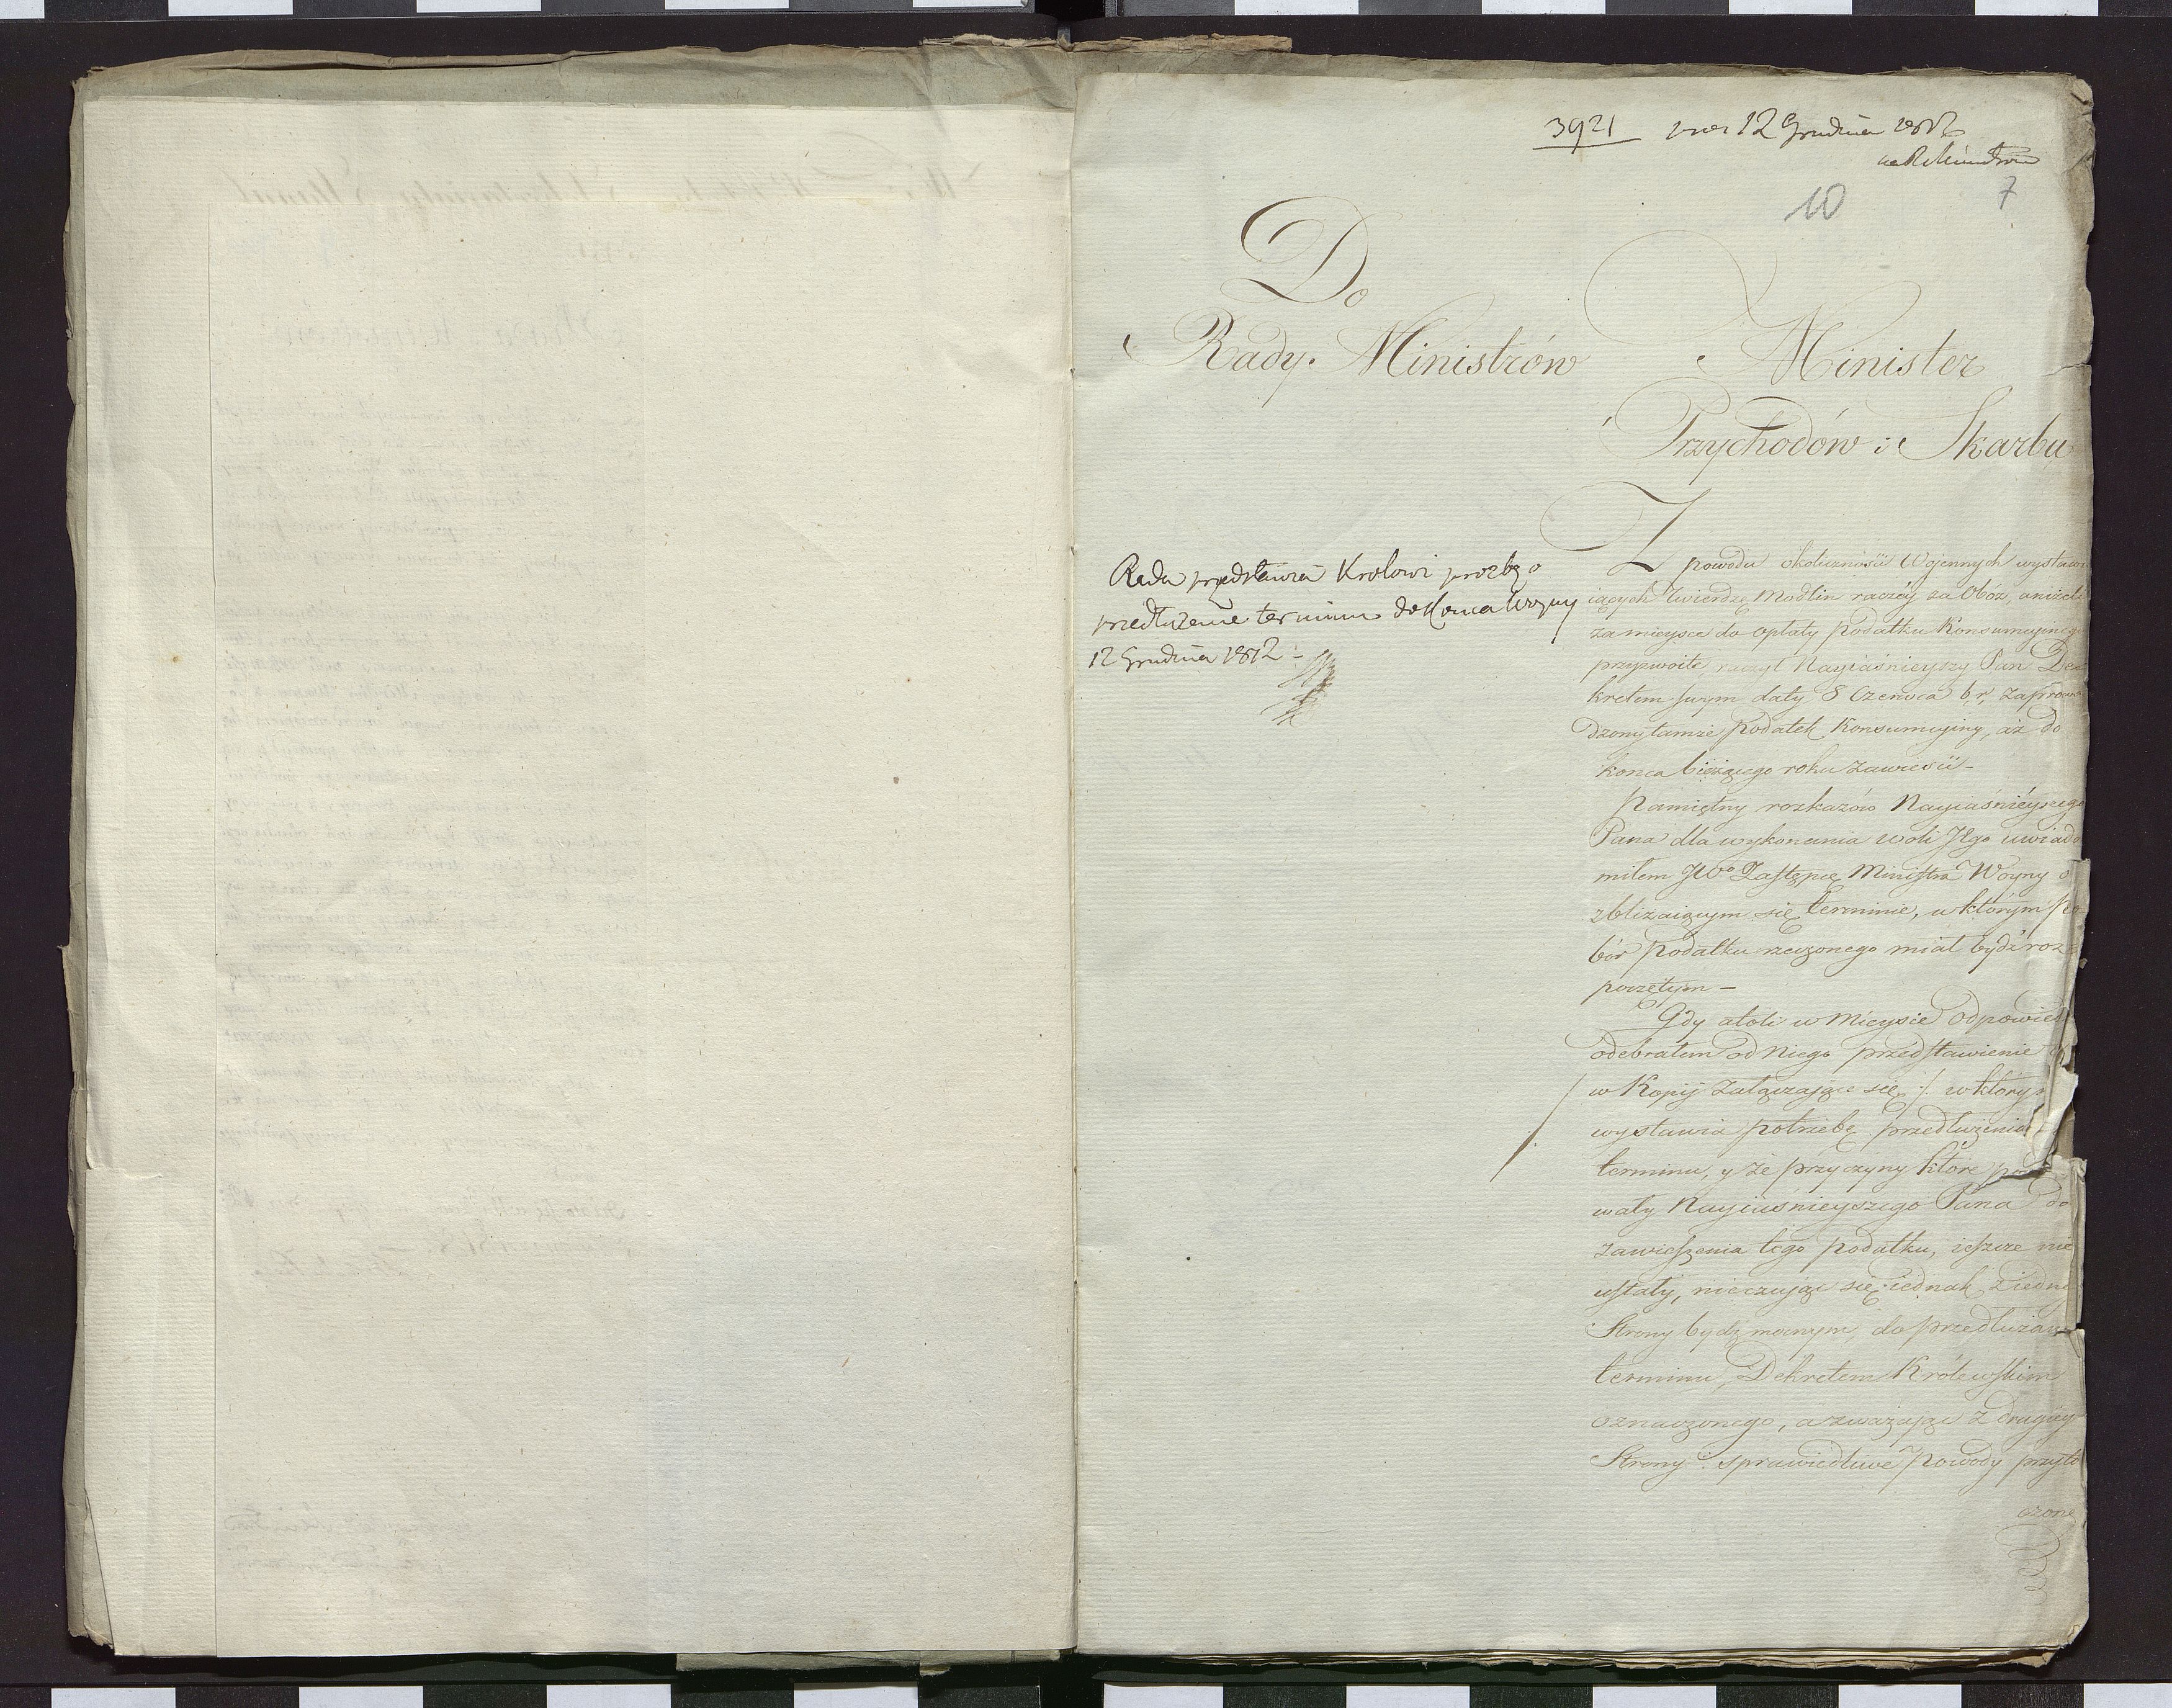 3921 12 Grudnia 1812
10 7
Do
Rady Ministrów
Minister
Przychodów i Skarbu
Rada przedstawia Krolowi prozbę o
przedłużenie terminu do Konca Woyny
12 Grudnia 1812 -
Z powodu okolicznosći Woyennych wystawu
iących twierdzę Modlin raczéy za Obóz, aniżeli
za mieysce do opłaty podatku Konsumcyinego
przyzwoite, raczył Nayiaśnieyszy Pan De
kretem swym daty 8 Czerwca b. r. zaprowa
dzony tamże Podatek Konsumcyiny, aż do
końca bieżącego roku zawiesić -
Pamiętny rozkazów Nayiaśniéyszego
Pana dla wykonania woli Jego uwiado
miłem JWo Zastępcę Ministra Woyny o
zbliżaiącym się terminie, w którym po
bór podatku rzeczonego miał bydź roz
poczętym -
Gdy atoli w Mieysce Odpowied
odebrałem od Niego przedstawienie
w Kopij załączające się ./. w który
wystawia potrzebę przedłużenia
terminu, y że przyczyny które po
wały Nayiaśnieyszego Pana do
zawieszenia tego podatku, ieszcze nie
ustały, nieczując się iednak z iedne
Strony bydź mocnym, do przedłużan
terminu, Dekretem Królewskim
oznaczonego, a zważając z drugiéy
Strony sprawiedliwe Powody przyto
czone